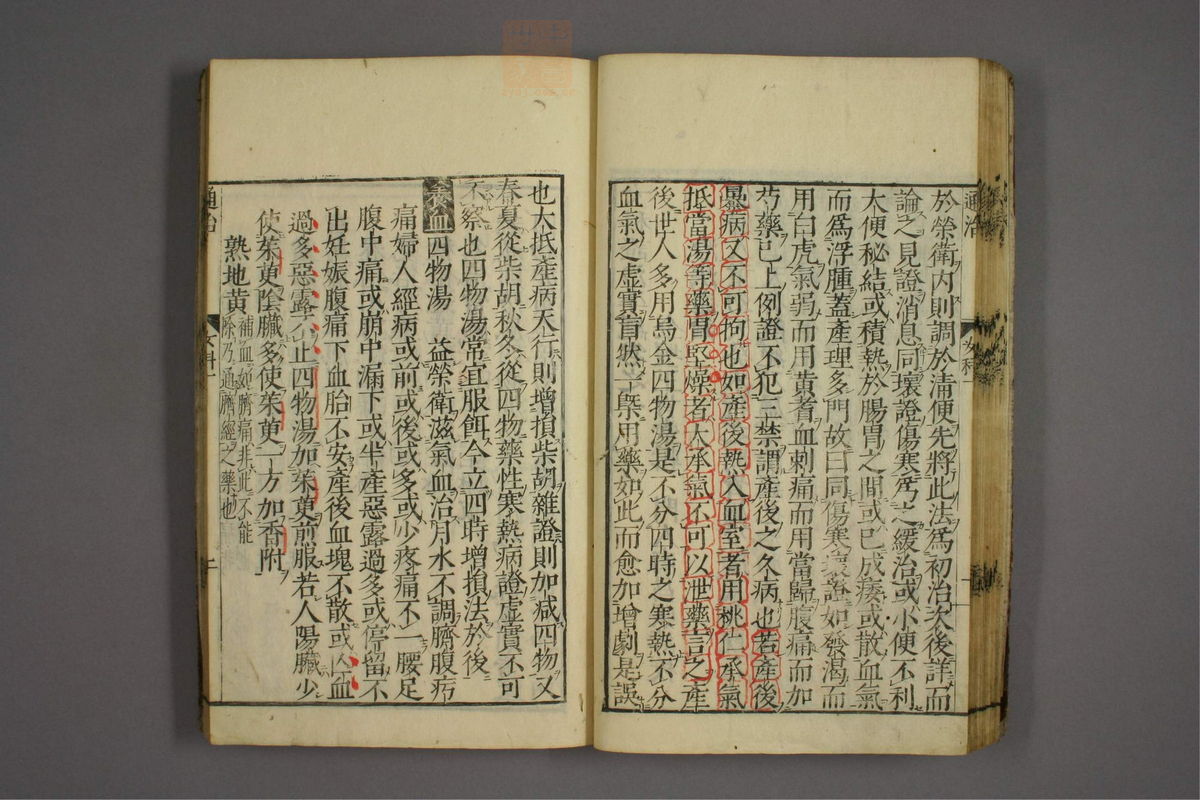 於榮衛内則調於清便先將此法爲初治次後詳而
論之見證消息同壞證傷寒爲之緩治或小便不利
大便秘結或積熱於腸胃之間或已成痿或散血氣
而爲浮腫蓋產理多門故曰同傷寒壞證如發渴而
用白虎氣弱而用黄耆血刺痛而用當歸腹痛而加
芍藥已上例證不犯三禁謂產後之久病也若產後
暴病又不可拘也如產後熱入血室者用桃仁承氣
抵當湯等藥胃堅燥者大承氣不可以泄藥言之產
後世人多用烏金四物湯是不分四時之寒熱不分
血氣之虛實盲然一槩用藥如此而愈加增劇是誤
通治
女科
也大抵產病天行則增損柴胡雜證則加減四物又
春夏從柴胡秋冬從四物藥性寒熱病證虛實不可
不察也四物湯常宜服餌今立四時增損法於後
養血四物湯 益榮衛滋氣血治月水不調臍腹㽲
痛婦人經病或前或後或多或少疼痛不一腰足
腹中痛或崩中漏下或半產惡露過多或停留不
出妊娠腹痛下血胎不安產後血塊不散或亡血
過多惡露不止四物湯加茱萸煎服若人陽臟少
使茱萸陰臟多使茱萸一方加香附
熟地黄 補血如臍痛非此不能
除乃通臍經之藥也
通治
女科
十